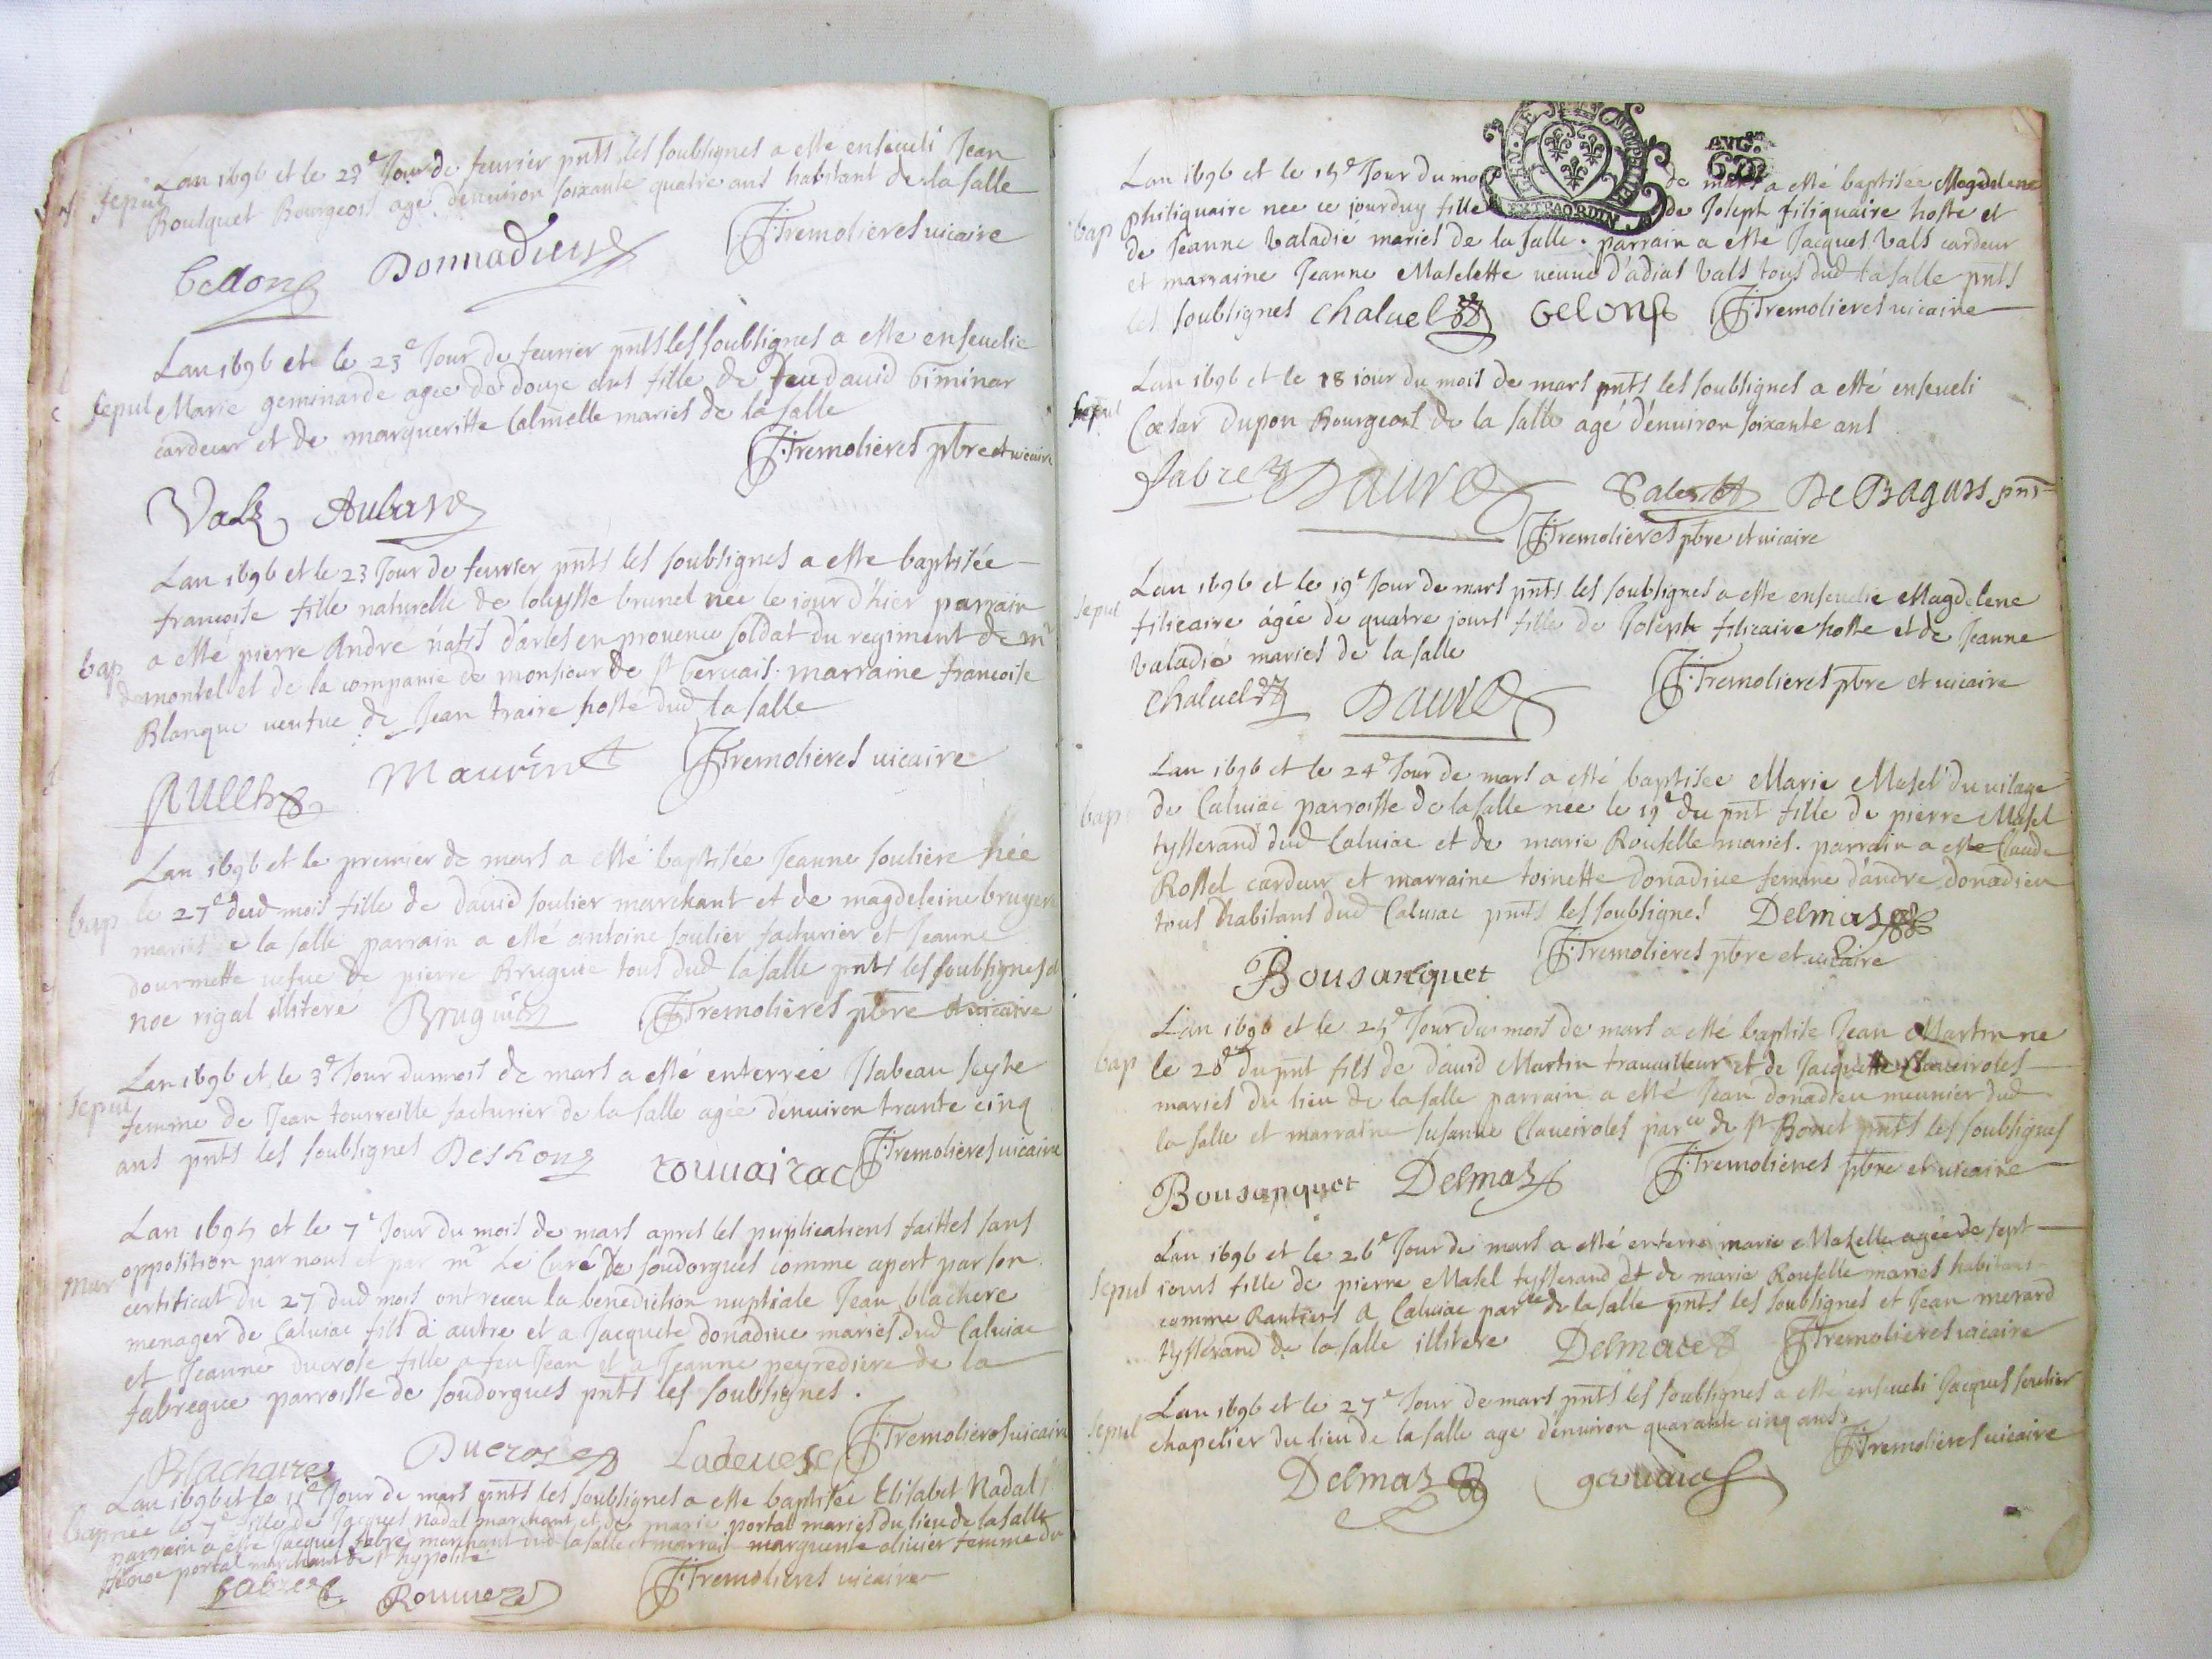 Lan 1696 et le 23e Jour de feurier pnts les soubsignes a esté enseueli Jean
sepul Bousquet Bourgeois age denuiron soixante quatre ans habitant de la salle
J:Tremolieres uicaire
Donnadieu
Lan 1696 et le 23e Jour de feurier pnts les soubsignes a esté enseuelie
sepul Marie geminarde agee de douze ans fille de feu dauid
cardeur et de margueritte Calmelle maries de la salle
J:Tremolieres pbre et uicaire
Valz
Lan 1696 et le 23 Jour de feurier pnts les soubsignes a esté baptisée
francoise fille naturelle de brunel nee le iour d'hier parrain
bap a esté pierre André natif d'arles en prouence soldat du regiment de mr
demontel et de la companie de monsieur de st geruais. marraine francoise
Blanque ueufue de Jean traire hoste dud lasalle
Maurin J:Tremolieres uicaire
Lan 1696 et le premier de mars a esté baptisée Jeanne souliere née
bap le 27e dud mois fille de dauid soulier marchant et de magdeleine bruyere
maries de la salle parrain a esté antoine soulier facturier et Jeanne
dourmette uefue de pierre Bruguie tous dud lasalle pnts les soubsignes et
noe rigal illitere Bruguier J:Tremolieres pbre et uicaire
Lan 1696 et le 3e Jour du mois de mars a esté enterrée Isabeau
sepul femme de Jean tourreille facturier de la salle agée denuiron trante cinq
ans pnts les soubsignes Deshons rouuairac J:Tremolieres uicaire
Lan 1695 et le 7e Jour du mois de mars apres les puplications faittes sans
mar opposition par nous et par mr Le Curé de soudorgues comme apert par son
certificat du 27 dud mois ont receu la benediction nuptiale Jean blachere
menager de Caluiac fils a autre et a Jacquete donadiue maries dud Caluiac
et Jeanne ducrose fille a feu Jean et a Jeanne peyrediere de la
fabregue parroisse de soudorgues pnts les soubsignes.
Blachaire Ducros Ladeuese J:Tremolieres uicaire
Lan 1696 et le 11e Jour de mars pnts les soubsignes a esté baptisée Elisabet Nadal
bap née le 7e fille de Jacques Nadal marchant et de marie portal maries du lieu de lasalle
parrain a esté Jacques fabre marchant dud lasalle et marrai marguerite oliuier femme du
portal marchant de st hypolite
fabre Rouuiere J:Tremolieres uicaire
EXTRAORDIN
Lan 1696 et le 15e Jour du mo de mars a esté baptisée Magdelene
bap philiquaire nee ce jourduy fille de Joseph filiquaire hoste et
de Jeanne Valadie maries de la salle. parrain a esté Jacques Vals cardeur
et marraine Jeanne Maselette ueuue d'adias Vals tous dud lasalle pnts
les soubsignes Chaluel Gelon J:Tremolieres uicaire
Lan 1696 et le 18 iour du mois de mars pnts les soubsignes a esté enseueli
sepul Cæsar dupon Bourgeois de la salle agé d'enuiron soixante ans
fabre Daure De Bagars pnt
J:Tremolieres pbre et uicaire
Lan 1696 et le 19e Jour de mars pnts les soubsignes a esté enseuelie Magdelene
sepul filicaire ágée de quatre jours fille de Joseph filicaire hoste et de Jeanne
Valadie maries de la salle
Chaluel Daure J:Tremolieres pbre et uicaire
Lan 1696 et le 24e Jour de mars a esté baptisée Marie Masel du uilage
bap de Caluiac parroisse de la salle nee le 19e du pnt fille de pierre Masel
tysserand dud Caluiac et de marie Rousselle maries. parrain a esté Claude
Rossel cardeur et marraine toinette donadiue femme d'andre donadieu
tous habitans dud Caluiac pnts les soubsignes Delmas
Bousanquet J:Tremolieres pbre et uicaire
Lan 1696 et le 25e Jour du mois de mars a esté baptisé Jean Martin ne
bap le 20e du pnt fils de dauid Martin trauailleur et de Jacquette Claueiroles
maries du lieu de la salle parrain a esté Jean donadieu meunier dud
la salle et marraine susanne Claueiroles parce de st Bonet pnts les soubsignes
Bousanquet Delmas J:Tremolieres pbre et uicaire
Lan 1696 et le 26e Jour de mars a esté enterré marie Maselle agée de sept
sepul iours fille de pierre Masel tysserand et de marie Rouselle maries habitans
comme Rantiers a Caluiac parce de la salle pnts les soubsignes et Jean merard
tysserand de la salle illitere Delmas J:Tremolieres uicaire
Lan 1696 et le 27e Jour de mars pnts les soubsignes a esté enseueli Jacques soulier
sepul chapelier du lieu de la salle age denuiron quarante cinq ans.
Delmas geruais J:Tremolieres uicaire